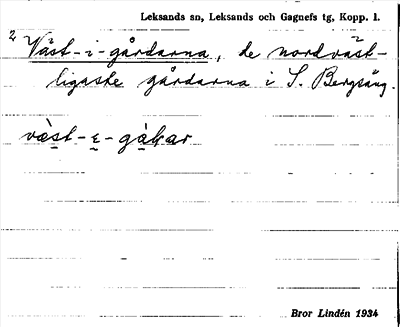 Leksands sn, Leksands och Gagnefs tg, Kopp. l.
2 Väst-i-gårdarna, de nordväst-
ligaste gårdarna i S. Bergsäng.
väst-e-gàkar
Bror Lindén 1934